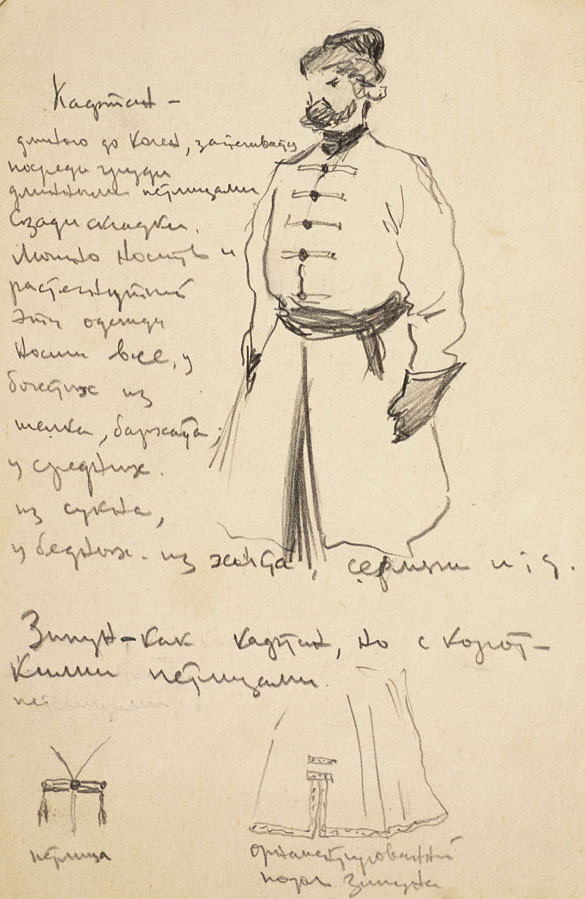 Кафтан –
длиною до колен, застегивается
посреди груди
длинными петлицами
Сзади складки.
Можно носить и
растегнутый
Эту одежду
носили все, у
богатых из
шелка, бархата,
у средних.
из сукна,
у бедных. из холста, сермяги и т д.
Зипун – как кафтан, но с корот-
кими петлицами.
петлицами
петлица
орнаментированный
подол зипуна